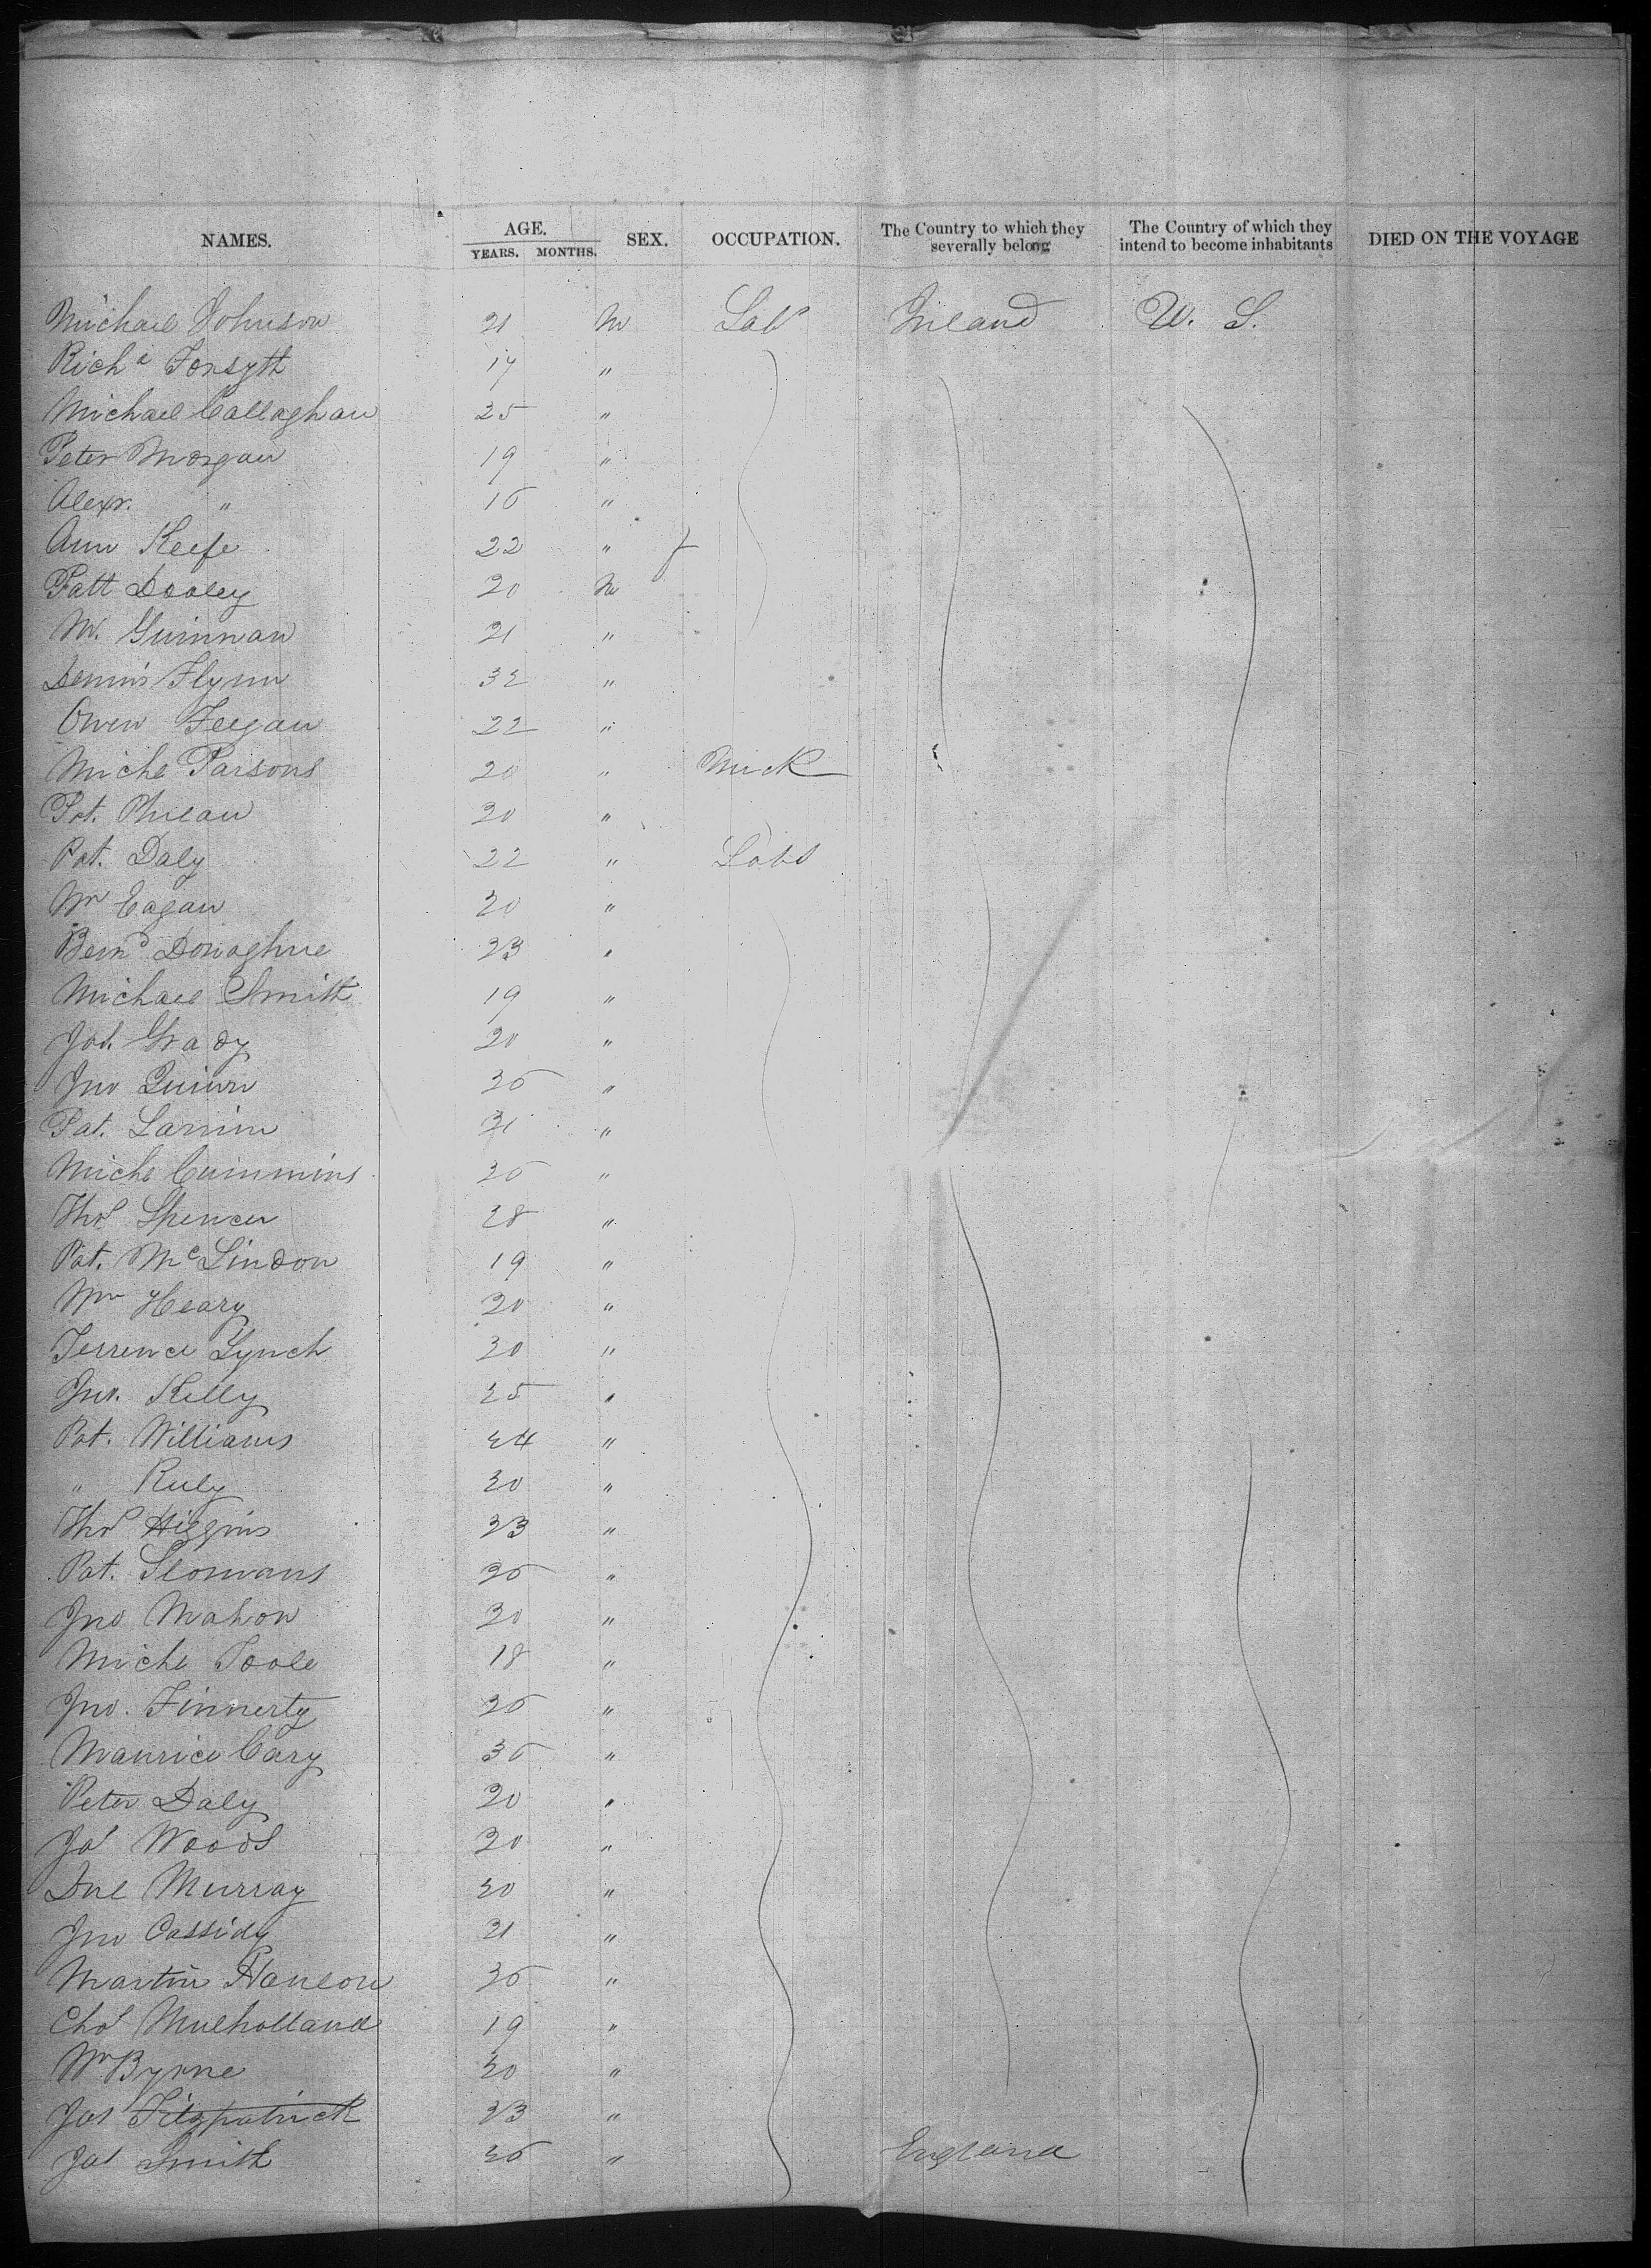 NAMES. AGE. YEARS. MONTHS. SEX. OCCUPATION. The Country to which they severally belong The Country of which they intend to become inhabitants DIED ON THE VOYAGE
Michael Johnson 21 M Labr Ireland U. S.
Richd Forsyth 17 "
Michael Callaghan 25 "
Peter Morgan 19 "
Alexr. " 16 "
Ann Keefe 22 " f
Patt Dooley 20 M
M. Guinnan 21 "
Dennis Flynn 32 "
Owen Feegan 22 "
Michl Parsons 20 "
Pat. Phelan 20 "
Pat. Daly 22 " Labs
Wm Eagan 20 "
Bernd Donaghue 23 "
Michael Smith 19 "
Jas. Grady 20 "
Jno Quinn 26 "
Pat. 21 "
Michl Cummins 26 "
Thos Spencer 28 "
Pat. McLindon 19 "
Wm Heary 20 "
Terrence Lynch 20 "
Jno. Kelly 25 "
Pat. Williams 24 "
" 20 "
Thos Higgins 23 "
Pat. 26 "
Jno Mahon 20 "
Michl Toole 18 "
Jno. Finnerty 26 "
Maurice Cary 36 "
Peter Daly 20 "
Jas Woods 20 "
Dnl Murray 20 "
Jno Cassidy 21 "
Martin Hanlon 26 "
Chas Mulholland 19 "
Wm Byrne 20 "
Jas Fitzpatrick 23 "
Jas Smith 26 " England